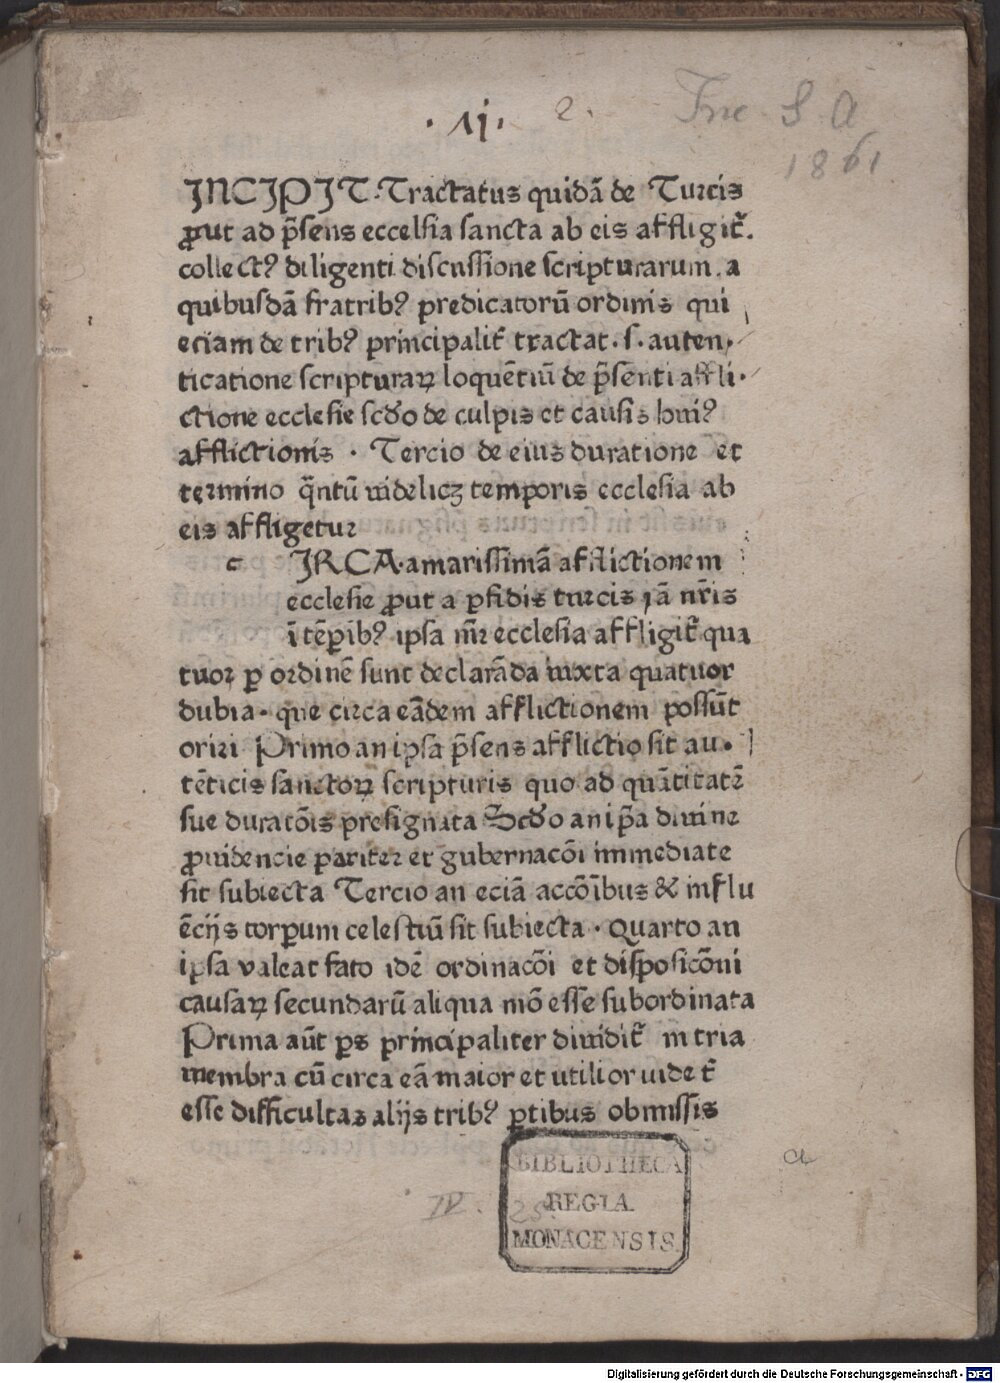 .ij. 2.
Inc S A
1861
INCIPIT. Tractatus quidā de Turcis
ꝓut ad p̄sens eccelsia sancta ab eis affligit᷑.
collectꝰ diligenti discussione scripturarum. a
quibusdā fratribꝰ predicatorū ordinis qui
eciam de tribꝰ principalit᷑ tractat. s. auten.
ticatione scripturaꝝ loquētiū de p̄senti affli.
ctione ecclesie scd̄o de culpis et causis huiꝰ
afflictionis . Tercio de eius duratione et
termino q̄ntū videlicꝫ temporis ecclesia ab
eis affligetur
c IRCA. amarissimā afflictionem
ecclesie ꝓut a ꝑfidis turcis iā nr̄is
ī tēꝑibꝰ ipsa mr̄ ecclesia affligit᷑ qua
tuor ꝑ ordinē sunt declarāda iuxta quatuor
dubia. que circa eādem afflictionem possūt
oriri Primo an ipsa p̄sens afflictio sit au.
tēticis sanctoꝝ scripturis quo ad quātitatē
sue duratōis presignata Scd̄o an ip̄a diuine
ꝓuidencie pariter et gubernacōi immediate
sit subiecta Tercio an eciā accōībus & influ
ēcijs corꝑum celestiū sit subiecta . Quarto an
ipsa valeat fato idē ordinacōi et disposicōni
causaꝝ secundarū aliqua mō esse subordinata
Prima aūt ꝑs principaliter diuidit᷑ in tria
membra cū circa eā maior et utilior uidet᷑
esse difficultas alijs tribꝰ ꝑtibus obmissis
a
BIBLIOTHECA
REGIA
MONACENSIS.
IV. 25.
Digitalisierung gefördert durch die Deutsche Forschungsgemeinschaft - DFG